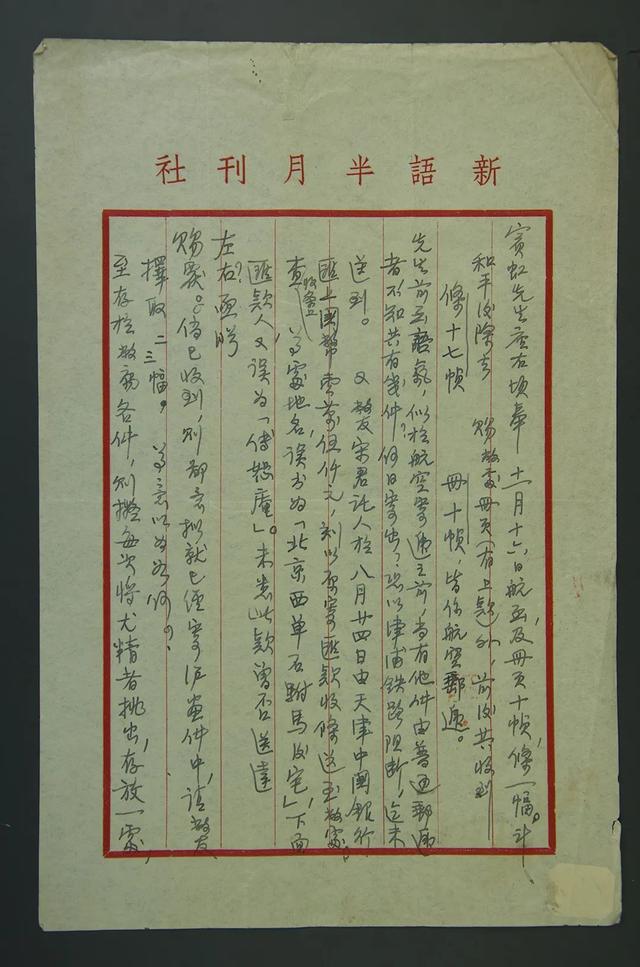 新語半月刊社
賓虹先生座右頃奉十一月十六日航函及冊頁十幀，條一幅。計
和平後除去賜敝處冊頁（有上款）外，前後共收到
條十七幀 冊十幀，皆係航空郵遞。
先生前函語氣，似於航空寄遞之前，尚有他件由普通郵遞
者不知共有幾件？何日寄出？恐以津浦鐵路阻斷，迄未
送到。又敝友宋君託人於八月廿四日由天津中國銀行
匯上國幣壹萬伍仟元，刻以原寄匯款收條送至敝處。
查 尊處地名，誤書為「北京西單石駙馬後宅」，下面
匯款人又誤為「傅怒庵」。未悉此款曾否送達
左右？便盼
賜覆。倘已收到，則鄙意擬就已經寄滬畫件中，請敝友
擇取二三幅。尊意以為如何？
至存於敝處各件，則擬每次將尤精者挑出，存放一處，